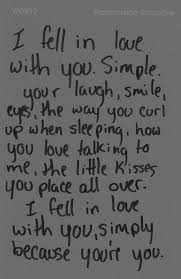 I fell in love
with you. Simple.
your laugh, smile,
eyes, the way you curl
up when sleeping, how
you love talking to
me, the little kisses
you place all over.
I, fell in love
with you, simply
because you're you.